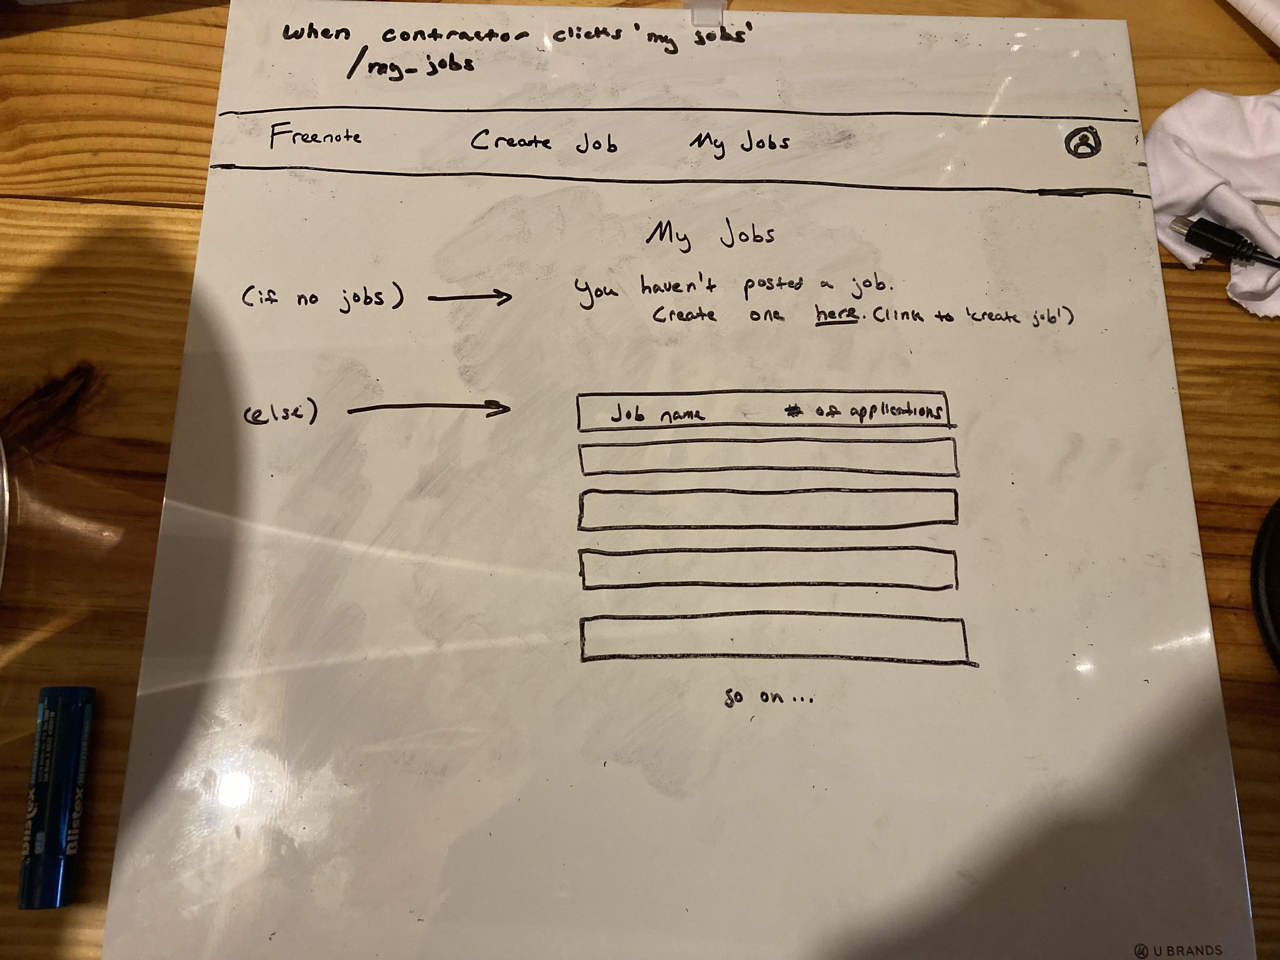 when contractor clicks 'my jobs'
/my_jobs
Freenote Create Job My Jobs
My Jobs
(if no jobs) You haven't posted a job.
Create one here. (link to 'create job')
(else)
Job name # of applications
so on...
Blistex
U BRANDS